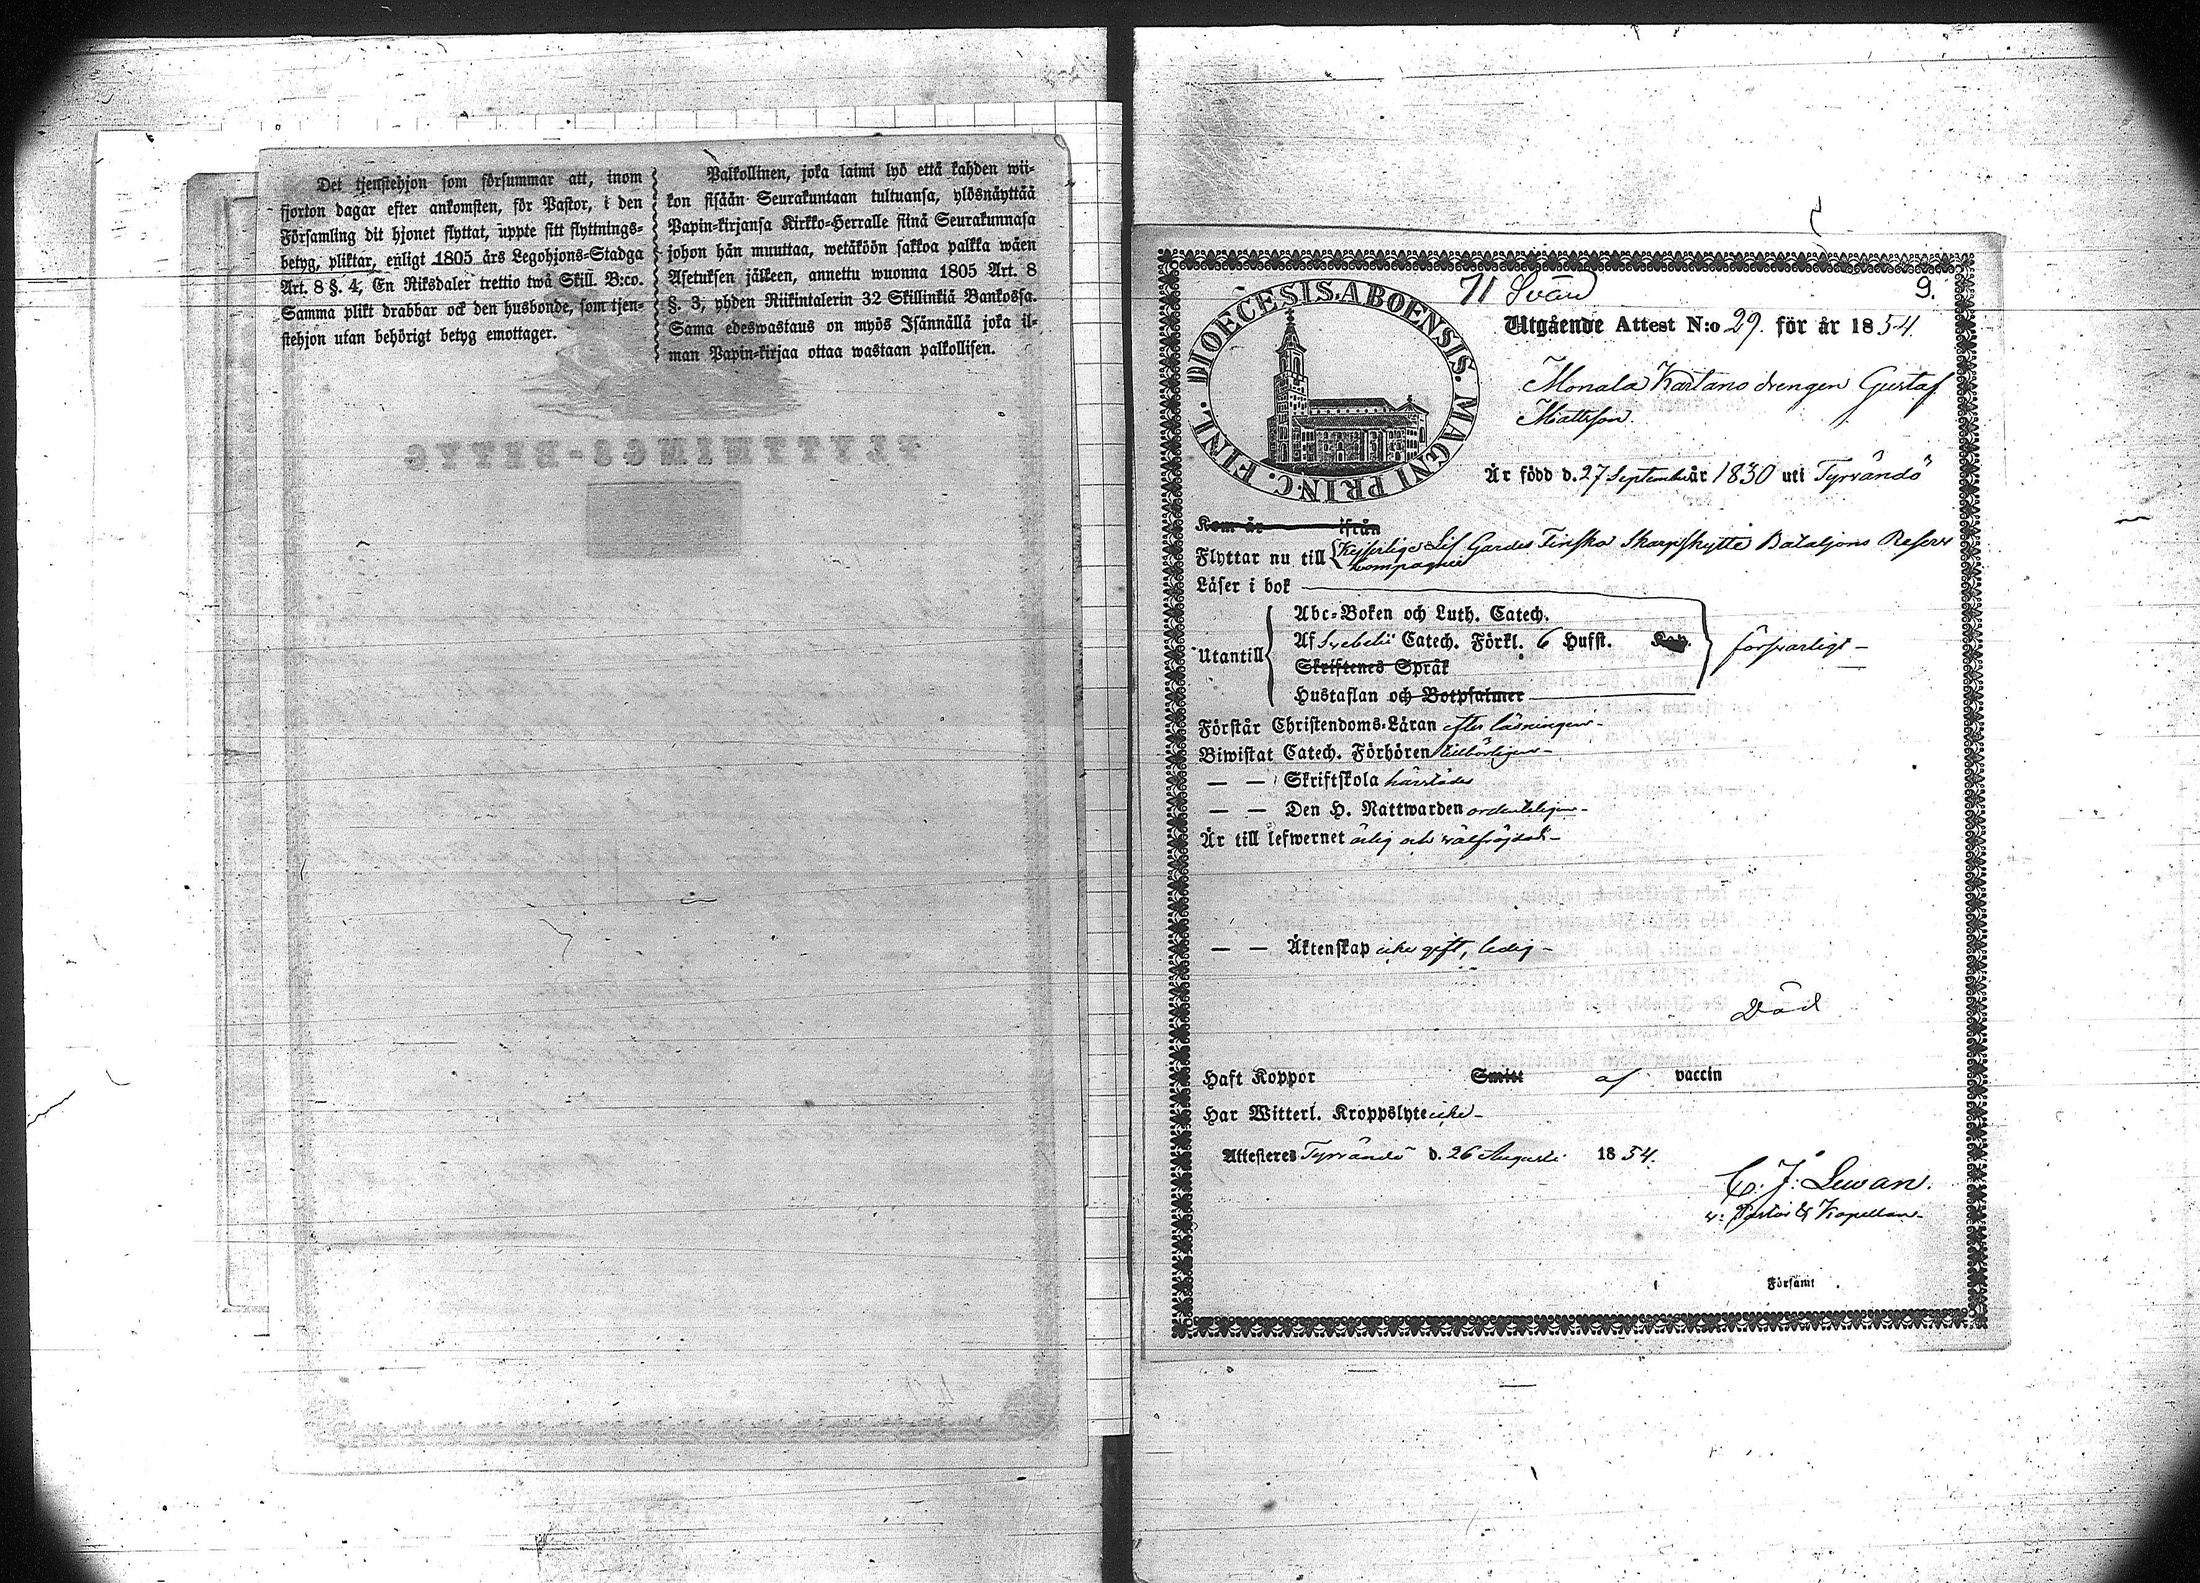 Det tjenstehjon som försummar att, inom
fjorton dagar efter ankomsten, för Pastor, i den
Församling dit hjonet flyttat, uppte sitt flyttnings-
betyg, pliktar, enligt 1805 års Legohjons-Stadga
Art. 8 §. 4, En Riksdaler trettio twå Skill. B:co.
Samma plikt drabbar ock den husbonde, som tjen-
stehjon utan behörigt betyg emottager.
Palkollinen, joka laimi lyö että kahden wii-
kon sisään Seurakuntaan tultuansa, ylösnäyttää
Papin-kirjansa Kirkko-Herralle siinä Seurakunnasa
johon hän muuttaa, wetäköön sakkoa palkka wäen
Asetuksen jälkeen, annettu wuonna 1805 Art. 8
§. 3, yhden Riikintalerin 32 Skillinkiä Bankossa.
Sama edeswastaus on myös Isännällä joka il-
man Papin-kirjaa ottaa wastaan palkollisen.
FLYTTNINGS-BETYG
71 Svan 9.
DIOECESIS. ABOENSIS. MAGNI PRINC. FINL.
Utgående Attest N:o 29. för år 1854.
Monala Kartano drengen Gustaf
Mattsson.
Är född d. 27 September år 1830 uti Tyrvändö
Kom år ifrån
Flyttar nu till Kejserliga Lif Gardes Finska Skarpskytte Bataljons Reserv
Compagnie
Läser i bok
Abc-Boken och Luth. Catech.
Utantill Af Svebelii Catech. Förkl. 6 Hufst. Kap. försvarligt
Skriftenes Språk
Hustaflan och Botpsalmer
Förstår Christendoms-Läran efter läsningen
Biwistat Catech. Förhören tillbörligen
— — Skriftskola härstädes
— — Den H. Nattwarden ordentligen
Är till lefwernet ärlig och välfrejdad
— — Äktenskap icke gift, ledig
Död
Haft Koppor Smitt af vaccin
Har Witterl. Kroppslyte icke
Attesteres Tyrvändö d. 26 Augusti 1854.
C. J. Lewan.
v. Pastor & Kapellan
Församt